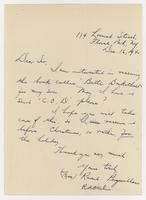 114 Locust Street,
Floral Park, NY
Dec. 16, 194
Dear Sir,
I am interested in receiving
the book called "Better Basketball"
for my son. May I have it
sent "C.O.D" please?
I hope you will take
care of this, so I can receive it
before Christmas, or within
the holiday.
Thank you very much
Yours truly,
(Mrs) Rose